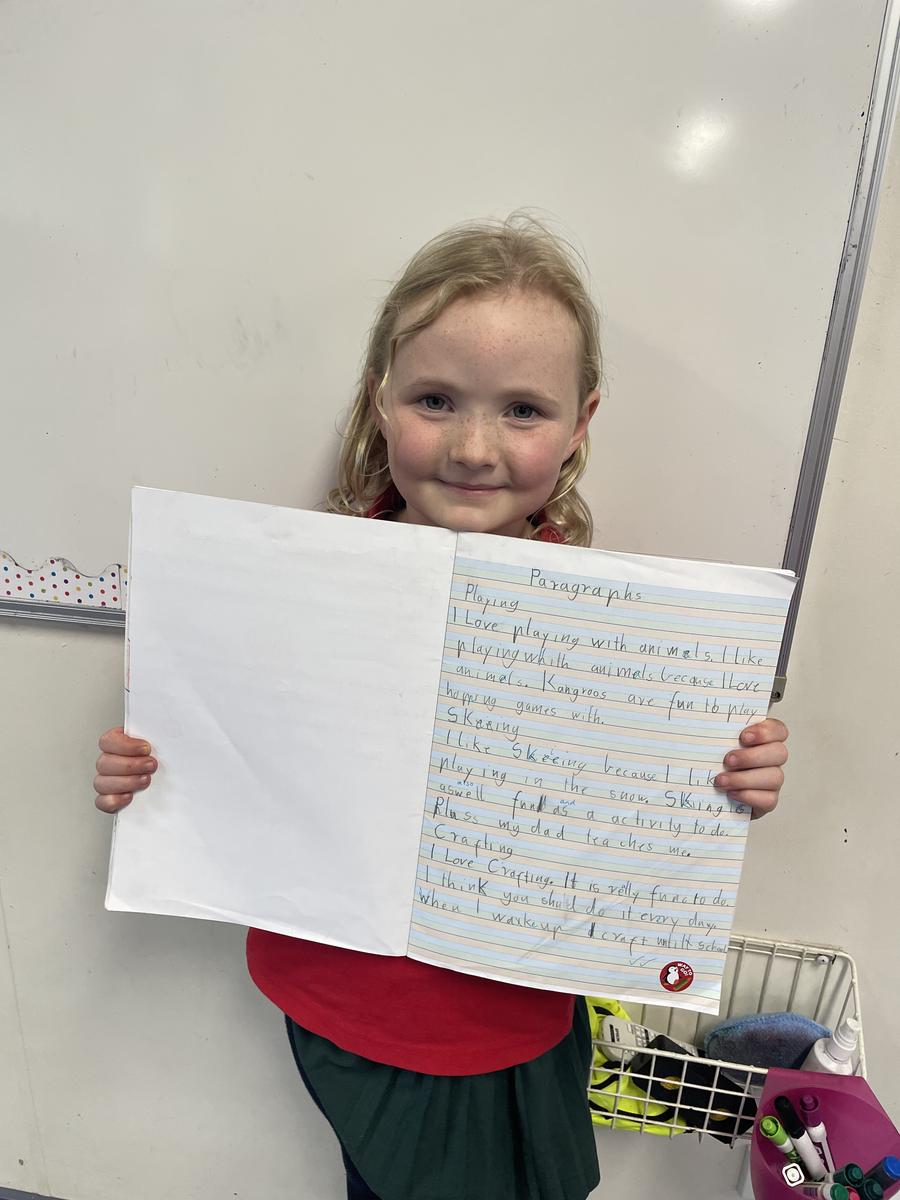 Paragraphs
Playing
I Love playing with animals. I like
playing whith animals because I Love
animals. Kangroos are fun to play
hopping games with.
Skeeing
I like Skeeing because I lik
playing in the snow. SKiing is
also and
aswell fun as a activity to do.
Pluss my dad teaches me.
Crafting
I Love Crafting. It is relly func to do.
I think you shuld do it every day.
When I wakeup I craft untilt school
WAY TO GO!